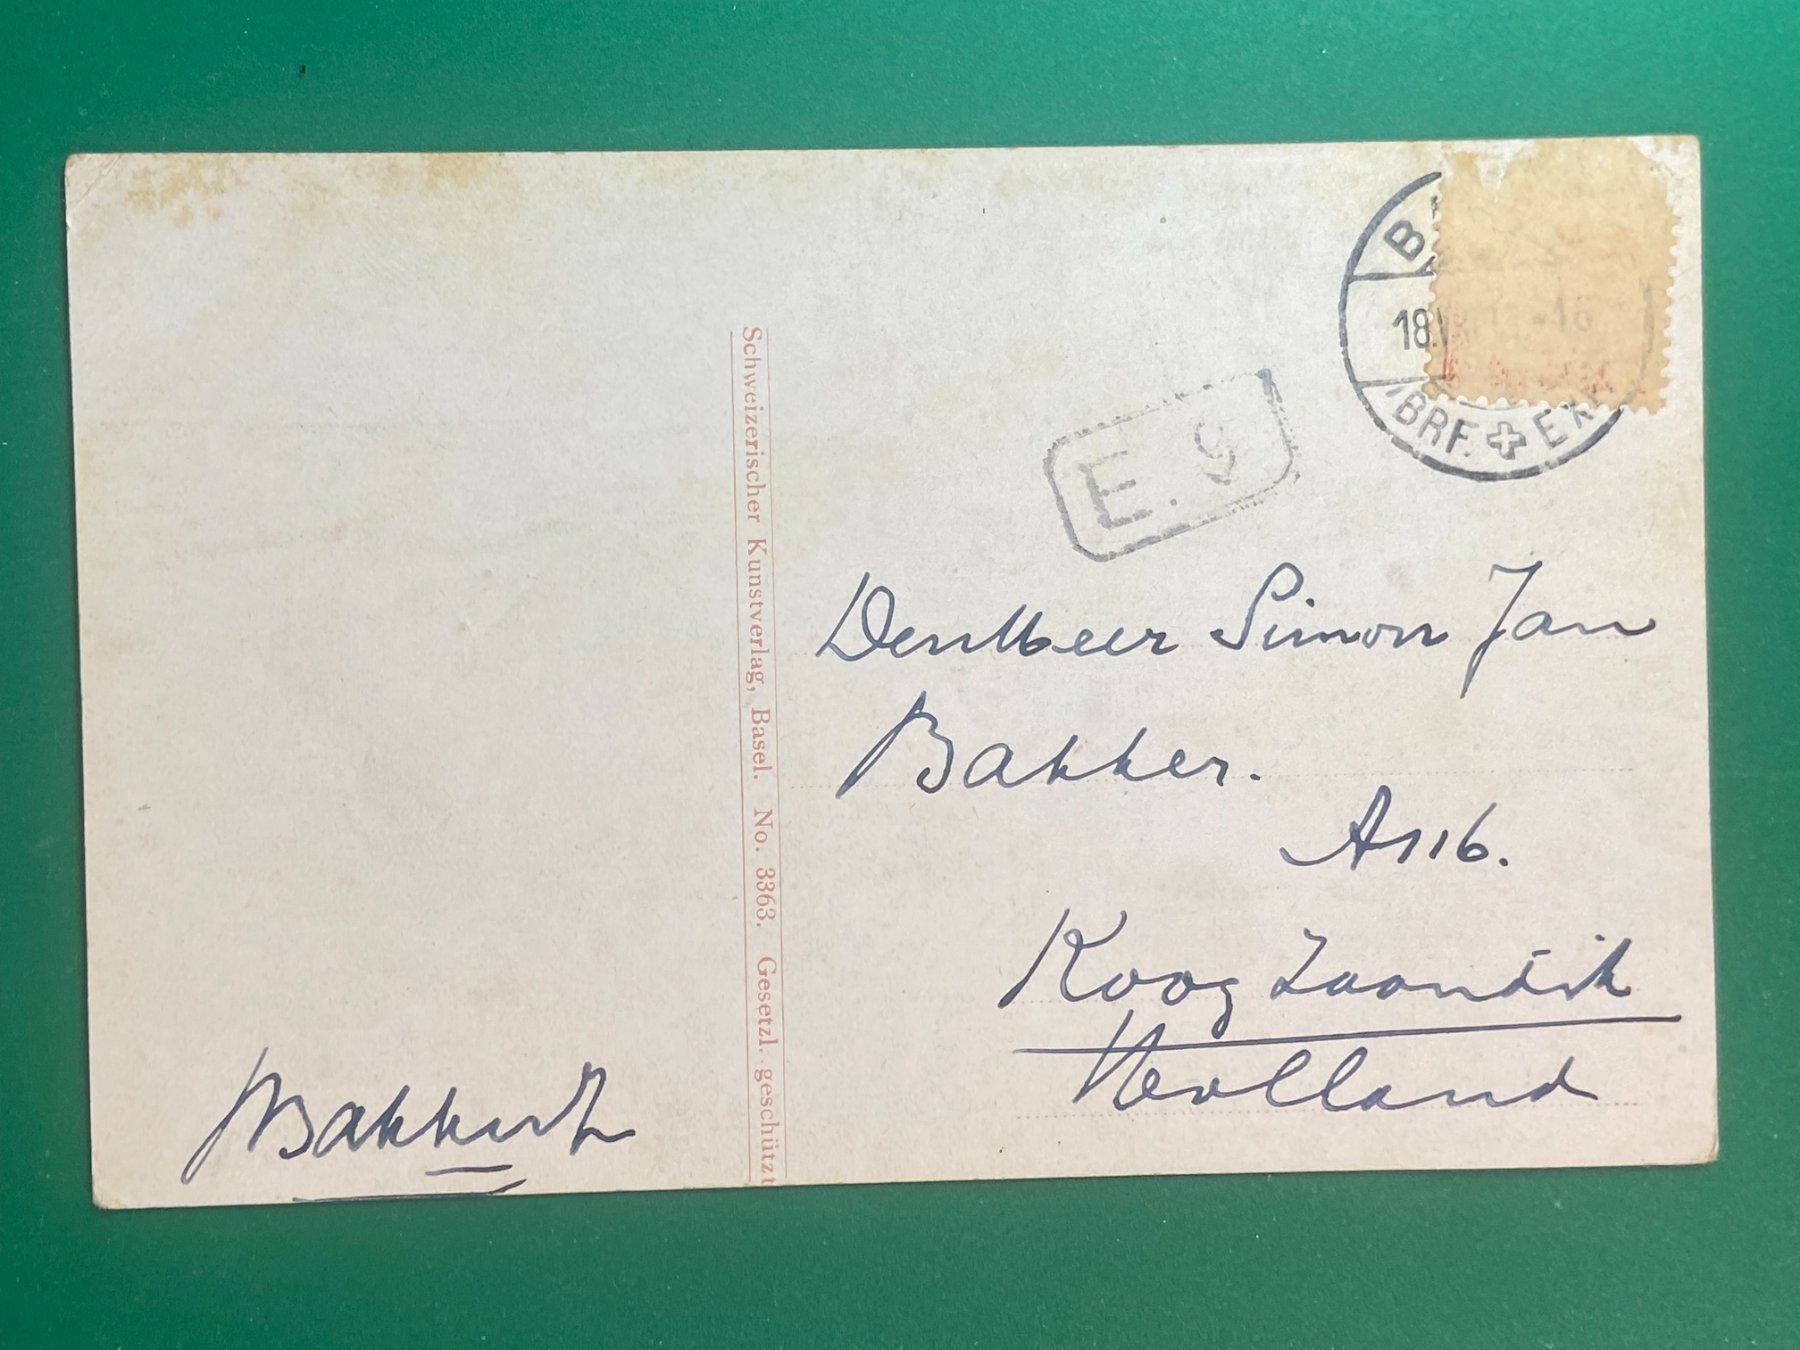 B
18.V
BRF. EX
E. 9
Schweizerischer Kunstverlag, Basel. No. 3363. Gesetzl. geschützt
Den Heer Simon Jan
Bakker.
A 116.
Koog Zaandik
Holland